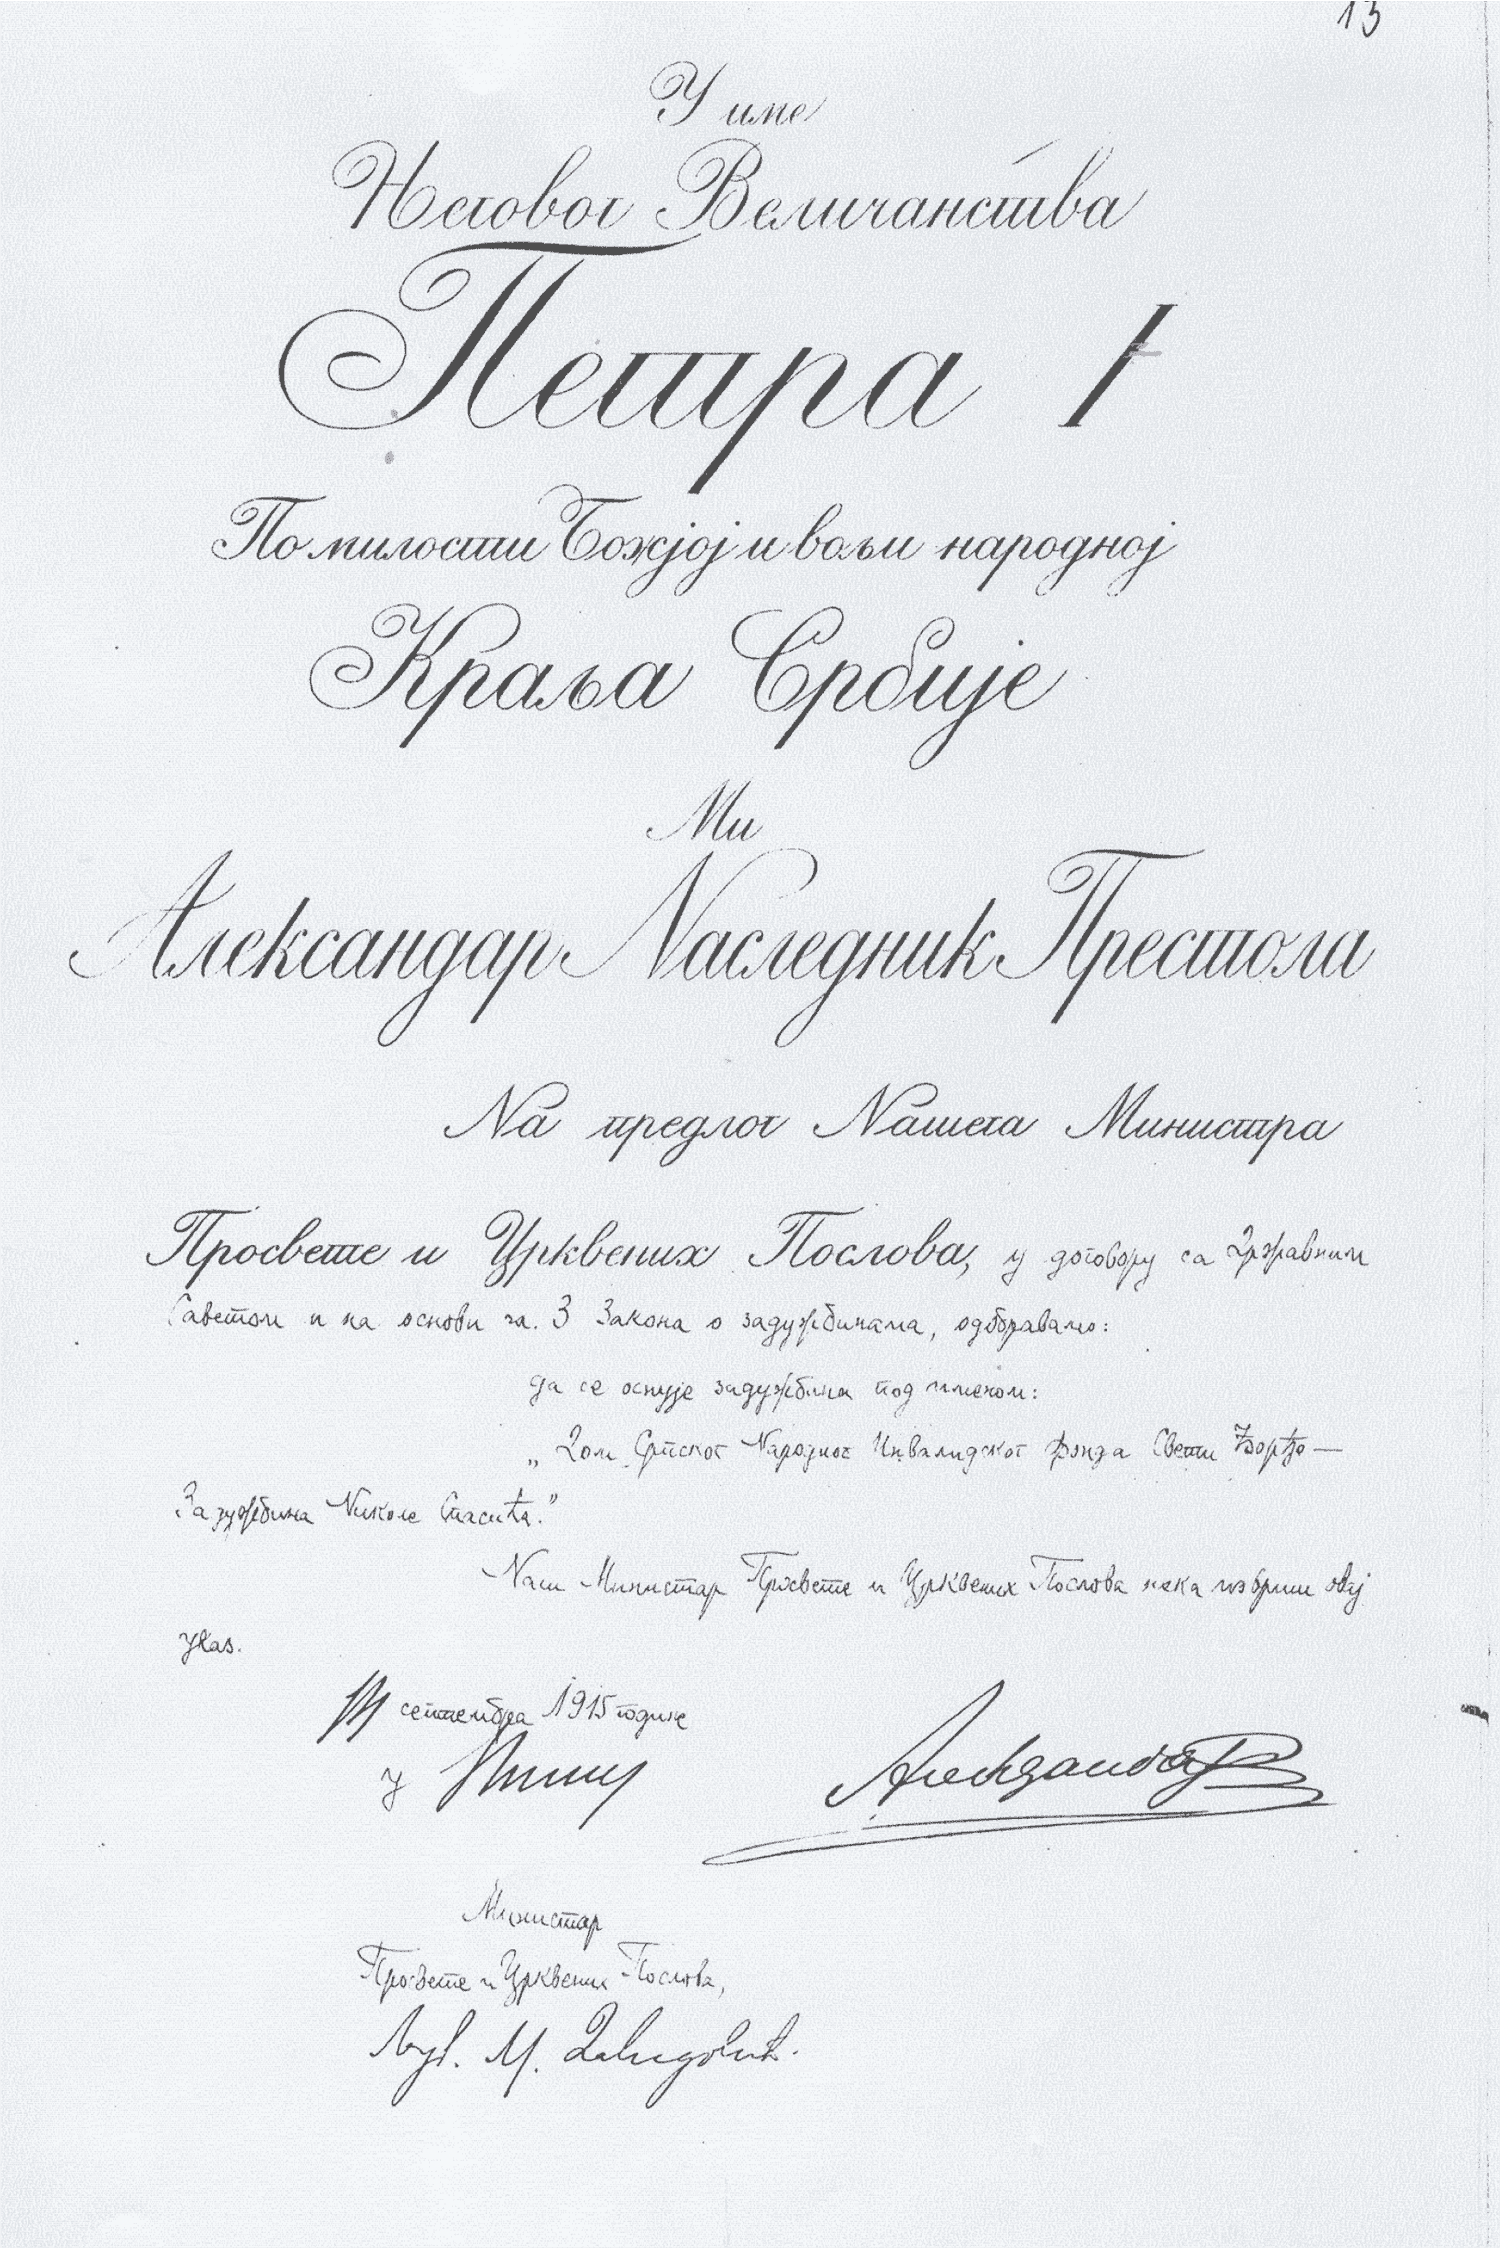 13
У име
Његовог Величанства
Петра I
По милости Божјој и вољи народној
Краља Србије
Ми
Александар Наследник Престола
На предлог Нашега Министра
Просвете и Црквених Послова, у договору са Државним
Саветом и на основи чл. 3 Закона о задужбинама, одобравамо:
да се оснује задужбина под именом:
„Дом Српског Народног Инвалидског Фонда Свети Ђорђе —
Задужбина Николе Спасића."
Наш Министар Просвете и Црквених Послова нека изврши овај
указ.
септембра 1915 године
у Нишу
Александар
Министар
Просвете и Црквених Послова,
Љуб. М. Давидовић.